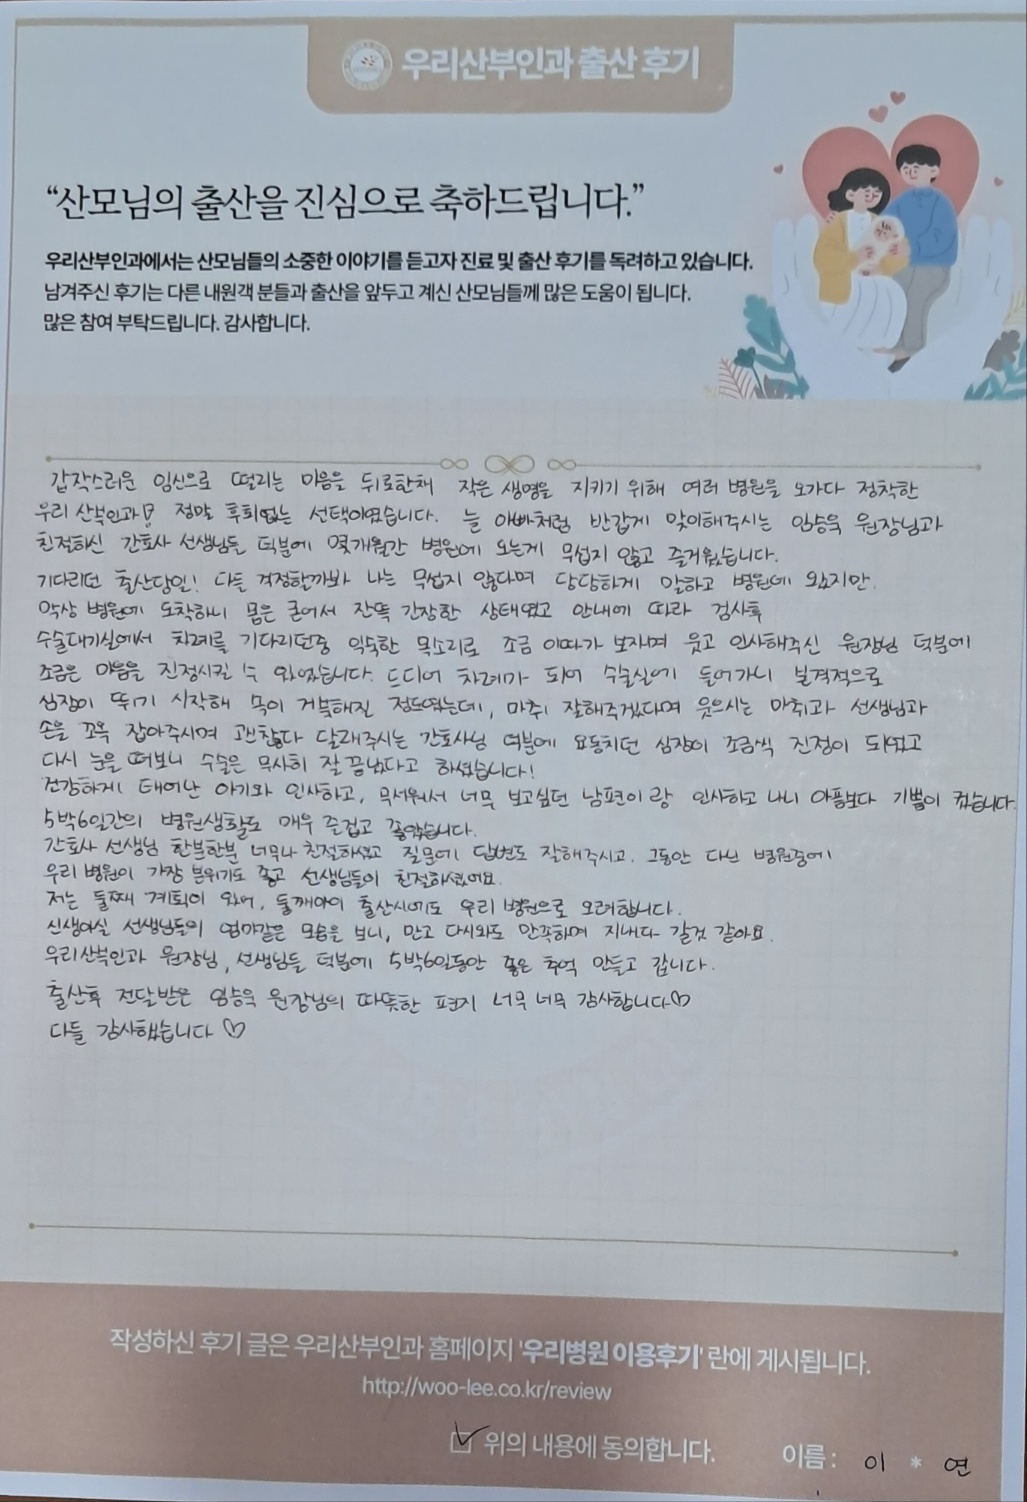 우리산부인과 출산 후기
“산모님의 출산을 진심으로 축하드립니다.”
우리산부인과에서는 산모님들의 소중한 이야기를 듣고자 진료 및 출산 후기를 독려하고 있습니다.
남겨주신 후기는 다른 내원객 분들과 출산을 앞두고 계신 산모님들께 많은 도움이 됩니다.
많은 참여 부탁드립니다. 감사합니다.
갑작스러운 임신으로 떨리는 마음을 뒤로한채 작은 생명을 지키기 위해 여러 병원을 오가다 정착한
우리 산부인과! 정말 후회없는 선택이였습니다. 늘 아빠처럼 반갑게 맞이해주시는 임승욱 원장님과
친절하신 간호사 선생님들 덕분에 몇개월간 병원에 오는게 무섭지 않고 즐거웠습니다.
기다리던 출산당일! 다들 걱정할까봐 나는 무섭지 않다며 당당하게 말하고 병원에 왔지만.
막상 병원에 도착하니 몸은 굳어서 잔뜩 긴장한 상태였고 안내에 따라 검사후
수술대기실에서 차례를 기다리던중 익숙한 목소리로 조금 이따가 보자며 웃고 인사해주신 원장님 덕분에
조금은 마음을 진정시킬 수 있었습니다. 드디어 차례가 되어 수술실에 들어가니 본격적으로
심장이 뛰기 시작해 목이 거북해질 정도였는데, 마취 잘해주겠다며 웃으시는 마취과 선생님과
손을 꼬옥 잡아주시며 괜찮다 달래주시는 간호사님 덕분에 요동치던 심장이 조금씩 진정이 되었고
다시 눈을 떠보니 수술은 무사히 잘 끝났다고 하셨습니다!
건강하게 태어난 아기와 인사하고, 무서워서 너무 보고싶던 남편이랑 인사하고 나니 아픔보다 기쁨이 컸습니다.
5박6일간의 병원생활도 매우 즐겁고 좋았습니다.
간호사 선생님 한분한분 너무나 친절하셨고 질문에 답변도 잘해주시고, 그동안 다닌 병원중에
우리 병원이 가장 분위기도 좋고 선생님들이 친절하셨어요.
저는 둘째 계획이 있어, 둘째아이 출산시에도 우리 병원으로 오려합니다.
신생아실 선생님들의 엄마같은 모습을 보니, 믿고 다시와도 만족하며 지내다 갈것 같아요.
우리산부인과 원장님, 선생님들 덕분에 5박6일동안 좋은 추억 만들고 갑니다.
출산후 전달받은 임승욱 원장님의 따뜻한 편지 너무 너무 감사합니다♡
다들 감사했습니다 ♡
작성하신 후기 글은 우리산부인과 홈페이지 '우리병원 이용후기' 란에 게시됩니다.
http://woo-lee.co.kr/review
위의 내용에 동의합니다. 이름 : 이 * 연